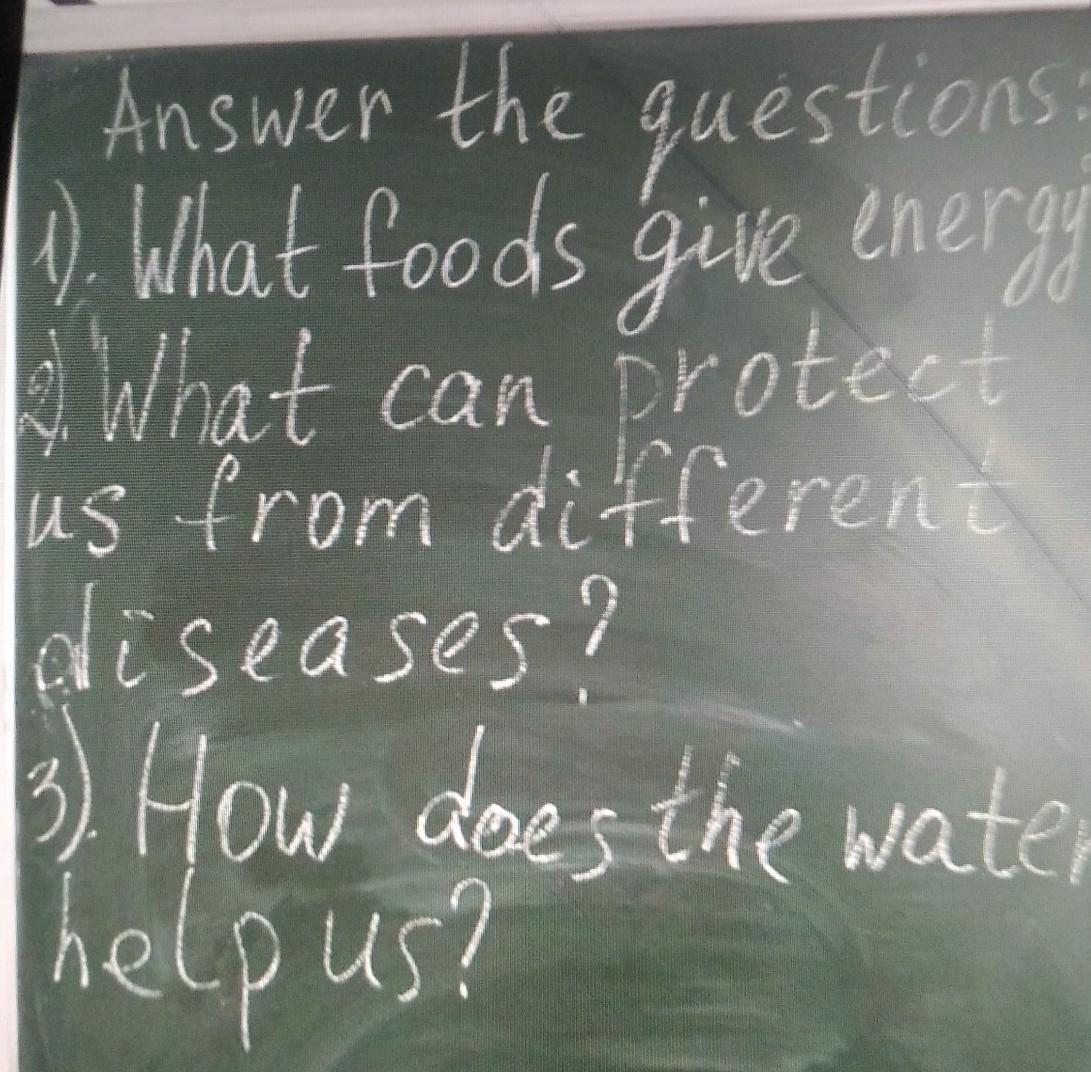 Answer the questions:
1). What foods give energy
2). What can protect
us from different
diseases?
3). How does the water
help us?